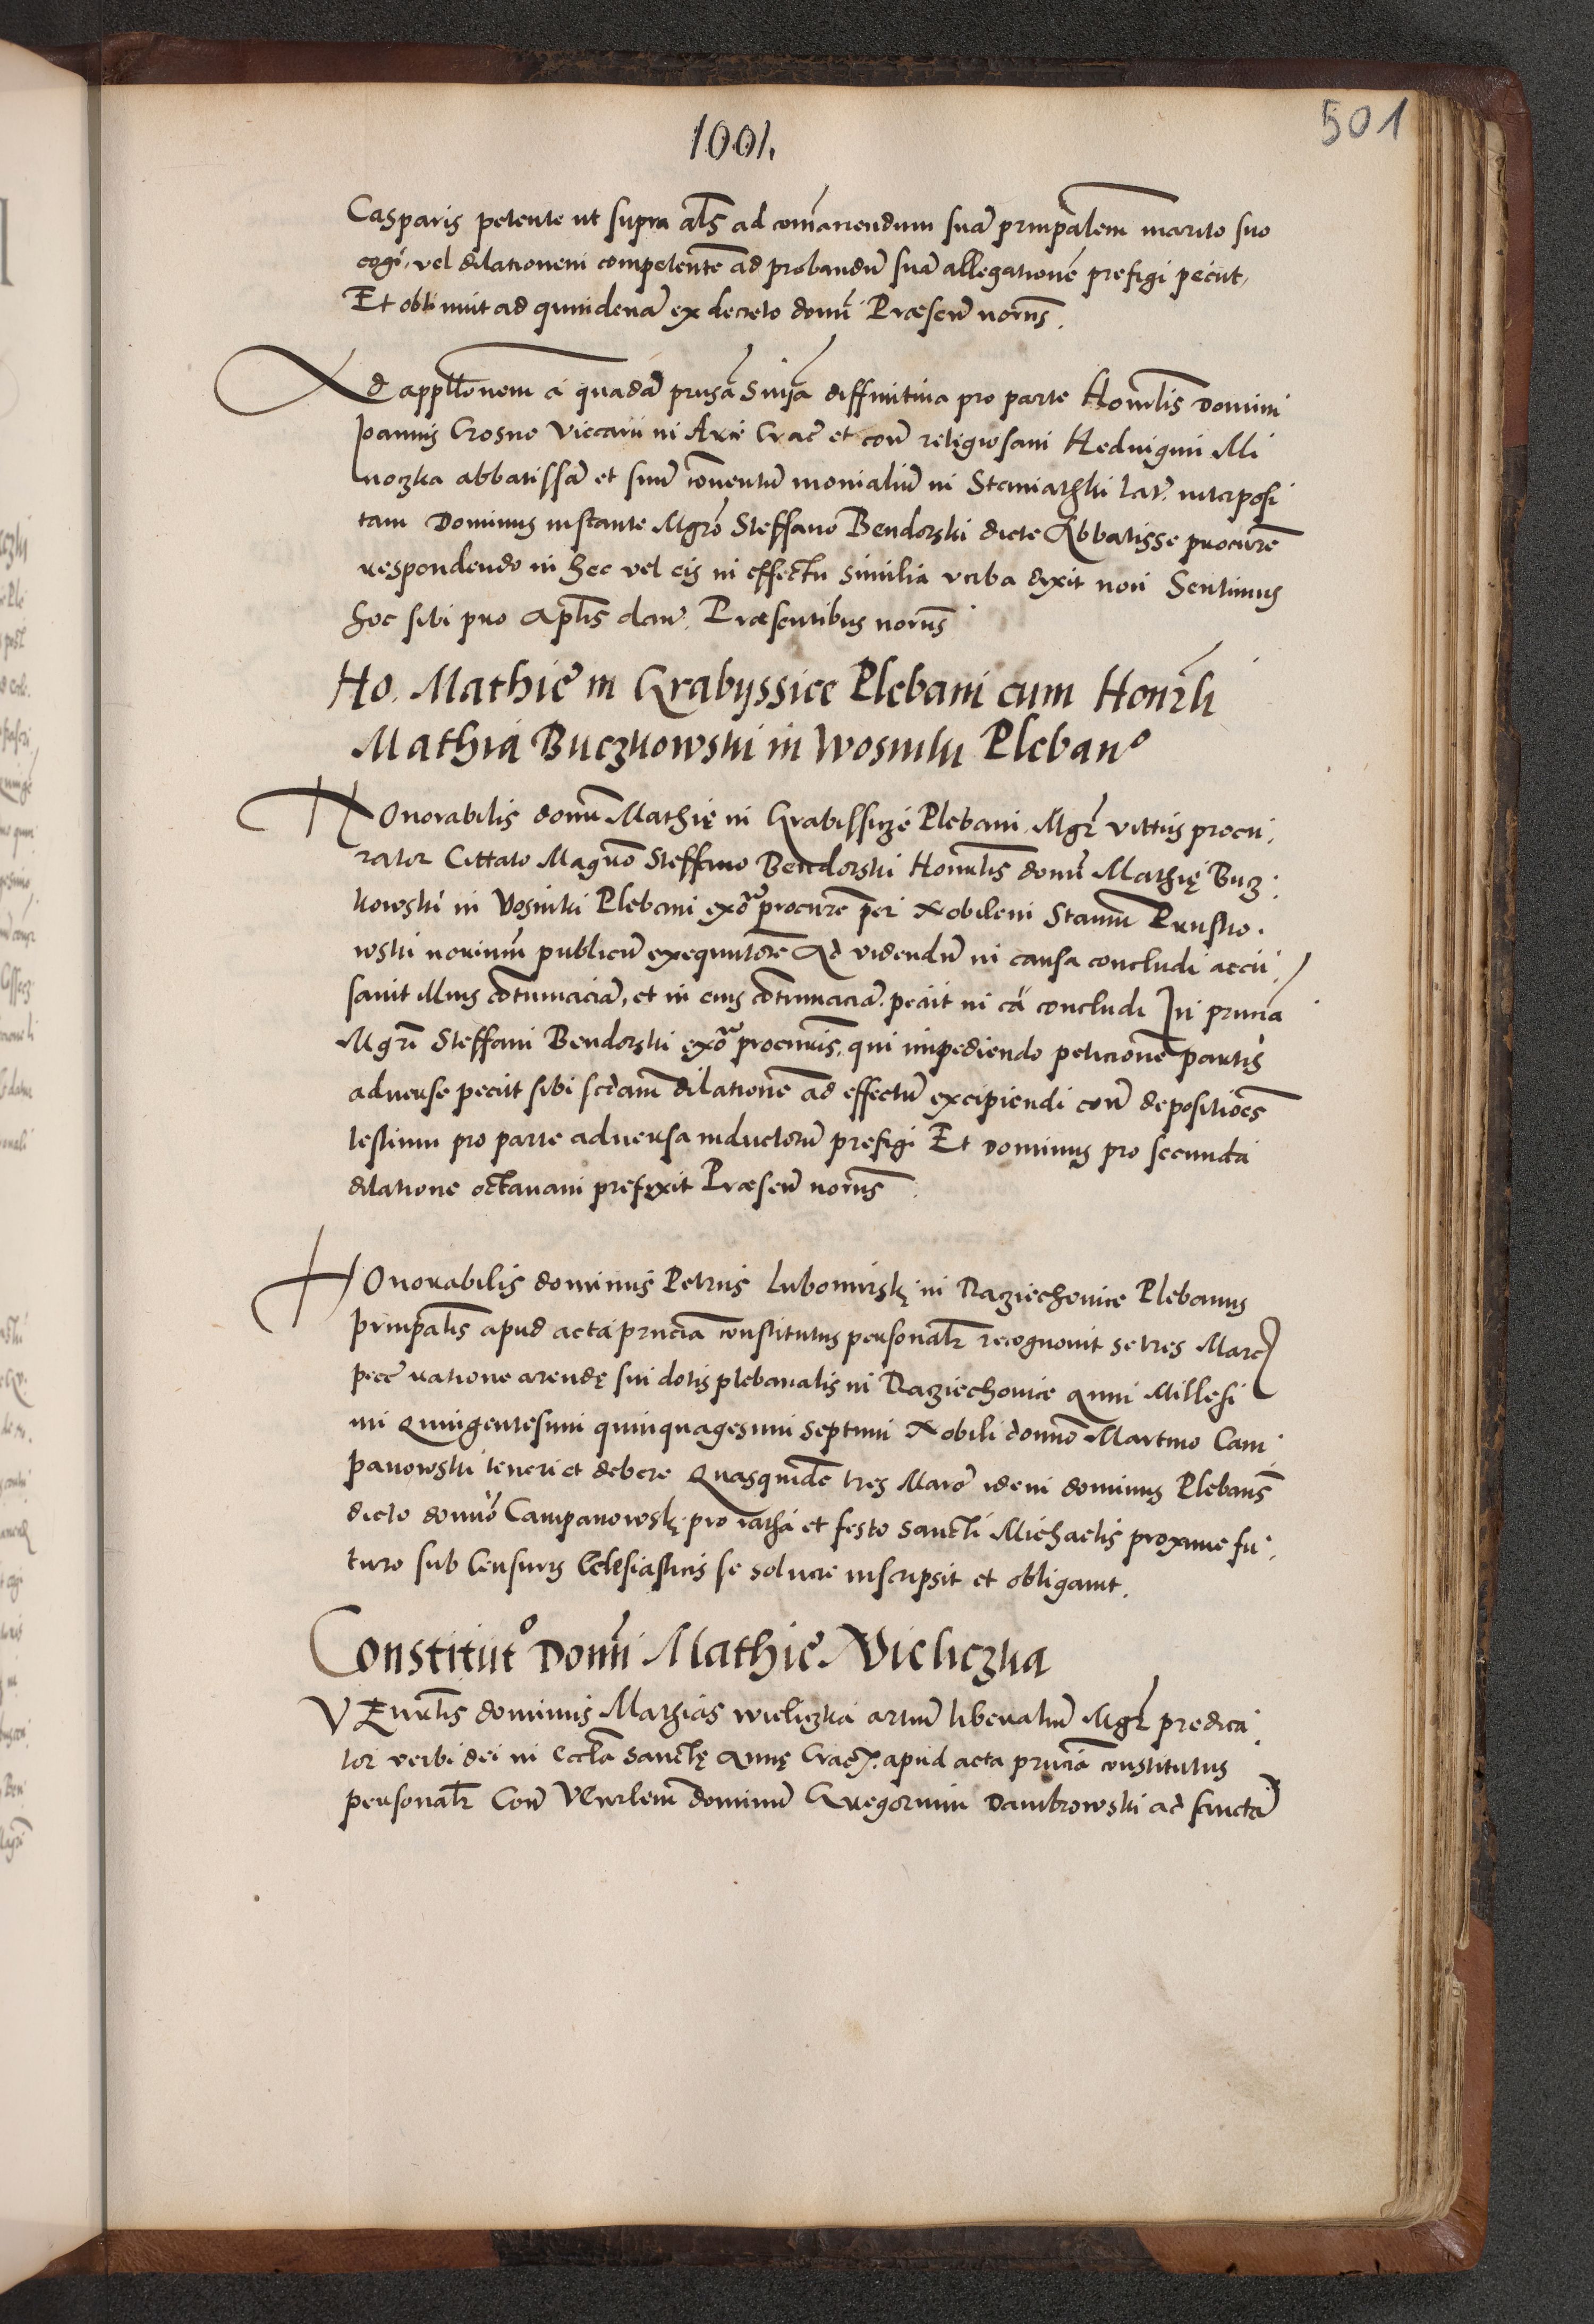 501
1001.
Casparis petente ut supra als ad comanendum suā prinpalem marito suo
cogi, vel dilationem competentē ad probandū suā allegationē prefigi peciit,
Et obtinuit ad quindenā ex decreto domī Præsen̄ notrijs.
Ad appllonem a quadā snīa diffinitiua pro parte Honrlis Domini
Joannis Crosno Viccarii in Arce Crac̄ et con̄ religiosam Heduigim Mi
noczka abbatissā et suū conuentū monialiū in Staniatzki lat̄. interposi
tam Dominus instante Mgrō Steffano Bendorski dicte Abbatisse procure
respondendo in hec vel eis in effectu similia verba dixit non Sentimus
hoc sibi pro Aplis dan̄. Præsentibus notrijs
Ho. Mathie in Grabyssice Plebani cum Honrli
Mathia Buczkowski in Wosniki Plebano
HOnorabilis domī Mathię in Grabissicze Plebani Mgr̄ vittus procu
rator Cittato Magrō Steffano Bendorski Honrlis domī Mathię Bucz
kowski in Vosniki Plebani procure per Nobilem Stanm̄ Prusko
wski notrium publicū exequutorē Ad videndū in causa concludi accu
sauit illius cōtumaciā, et in eius cōtumaciā peciit in cā concludi In pnciā
Mgri Steffani Bendorski procuris, qui impediendo peticionē partis
aduerse peciit sibi scdam dilationē ad effectū excipiendi con̄ depositiōes
testium pro parte aduersa inductorū prefigi Et Dominus pro secunda
dilatione octauam prefixit Præsen̄ notrijs
HOnorabilis dominus Petrus Lubomirskj in Radziechouice Plebanus
prinpalis apud acta pnciā constitutus personalr recognouit se tres Marc
pecc̄ ratione arendę sui dotis plebanalis in Radziechouice anni Millesi
mi Quingentesimi quinquagesimi septimi Nobili domno Martino Cam
panowski teneri et debere Quasquidē tres Marc̄ idem dominus Plebanus
dicto domno Campanowskj pro ratha et festo Sancti Michaelis proxime fu
turo sub Censuris Eclesiasticis se soluere inscripsit et obligauit.
Constituto Domi Mathie Wieliczka
VEnrlis dominus Mathias wieliczka artiū liberaliū Mgr̄ predica
tor verbi dei in Eccla Sanctę Annę Crac. apud acta pnciā constitutus
personalr Con̄ VEnrlem dominū Gregorium Dambrowski ad sanctā